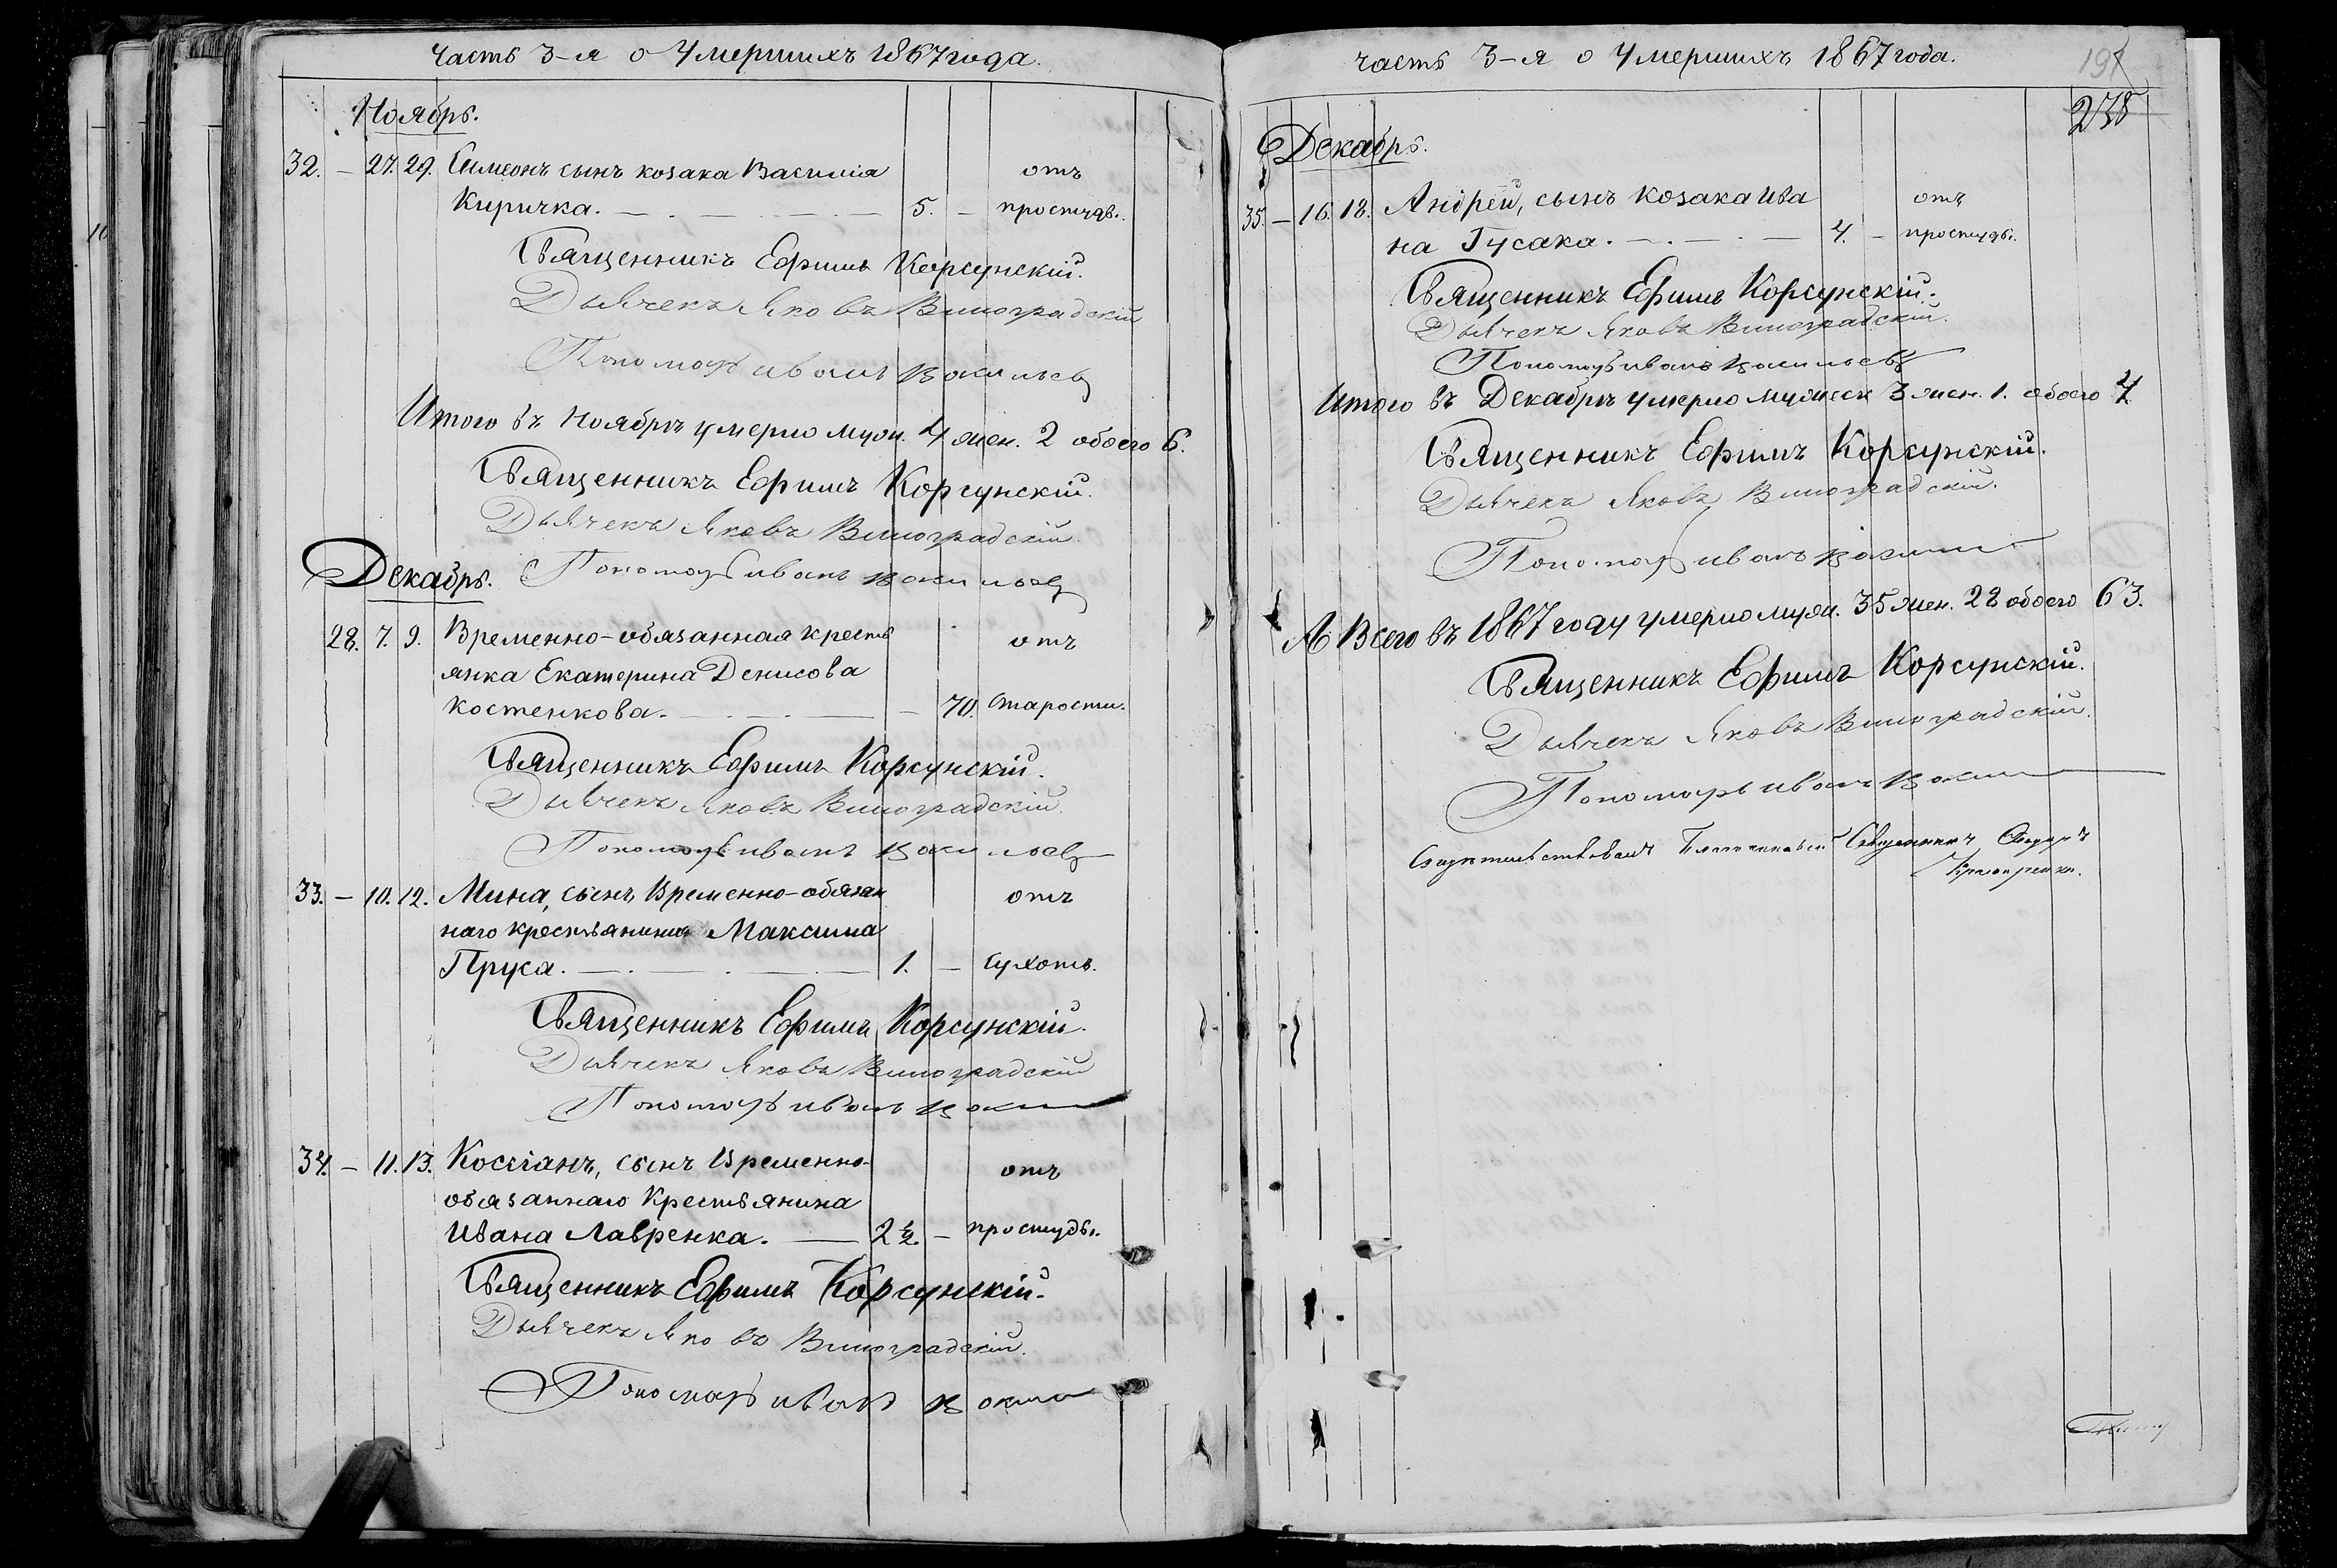 Часть 3-я о Умершихъ 1867 года.
Ноябрь.
32. – 27. 29. Симеонъ сынъ козака Василія отъ
Киричка. – 5. – простуды.
Священникъ Ефимъ Корсунскій.
Дьячекъ Яковъ Виноградскій
Пономарь Иванъ Васильев
Итого въ Ноябрѣ умерло муж. 4 жен. 2 обоего 6.
Священникъ Ефимъ Корсунскій.
Дьячекъ Яковъ Виноградскій.
Пономарь Иванъ Васильев
Декабрь.
28. 7. 9. Временно-обязанная кресть отъ
янка Екатерина Денисова
Костенкова. – 70. старости.
Священникъ Ефимъ Корсунскій.
Дьячекъ Яковъ Виноградскій.
Пономарь Иванъ Васильев
33. – 10. 12. Мина, сынъ Временно-обязан отъ
наго крестьянина Максима
Пруса. – 1. – сухотъ.
Священникъ Ефимъ Корсунскій.
Дьячекъ Яковъ Виноградскій
Пономарь Иванъ
34. – 11. 13. Кассіанъ, сынъ Временно- отъ
обязаннаго Крестьянина
Ивана Лавренка. – 2½. – простуды.
Священникъ Ефимъ Корсунскій.
Дьячекъ Яковъ Виноградскій.
Пономарь Иванъ
часть 3-я о Умершихъ 1867 года.
238
Декабрь.
35. – 16. 18. Андрей, сынъ козака Ива отъ
на Гусака. – 4. – простуды.
Священникъ Ефимъ Корсунскій.
Дьячекъ Яковъ Виноградскій.
Пономарь Иванъ Васильев
Итого въ Декабрѣ умерло мужеск 3 жен. 1. обоего 4.
Священникъ Ефимъ Корсунскій.
Дьячекъ Яковъ Виноградскій.
Пономарь Иванъ
А Всего въ 1867 году умерло муж. 35 жен. 28 обоего 63.
Священникъ Ефимъ Корсунскій.
Дьячекъ Яковъ Виноградскій.
Пономарь Иванъ
Свидетельствовалъ Священникъ